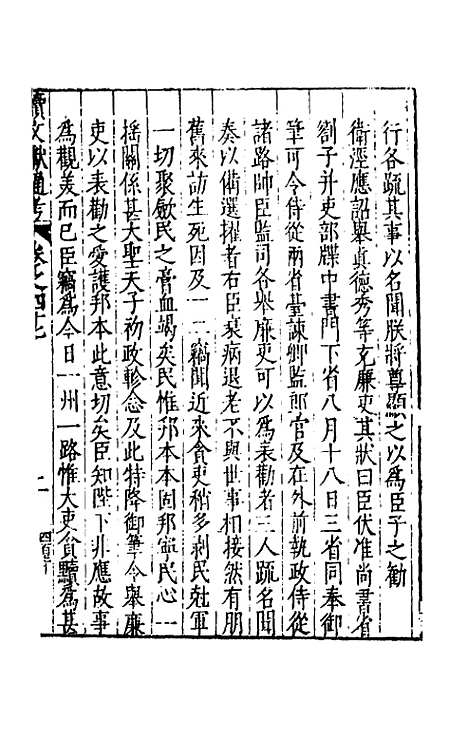 行各疏其事以名聞朕將尊顯之以爲臣子之勸
衛涇應詔舉真德秀等充廉吏其狀曰臣伏准尚書省
劄子并吏部牒中書門下省八月十八日三省同奉御
筆可令侍從兩省臺諫卿監郎官及在外前執政侍從
諸路帥臣監司各舉廉吏可以爲表勸者三人疏名聞
奏以備選擢者右臣衰病退老不與世事相接然有朋
舊來訪生死因及一二竊聞近來貪吏稍多剥民尅軍
一切聚歛民之膏血竭矣民惟邦本本固邦寧民心一
搖關係甚大聖天子初政軫念及此特降御筆令舉廉
吏以表勸之愛護邦本此意切矣臣知陛下非應故事
爲觀美而已臣竊爲今日一州一路惟大吏貪黷爲甚
續文獻通考